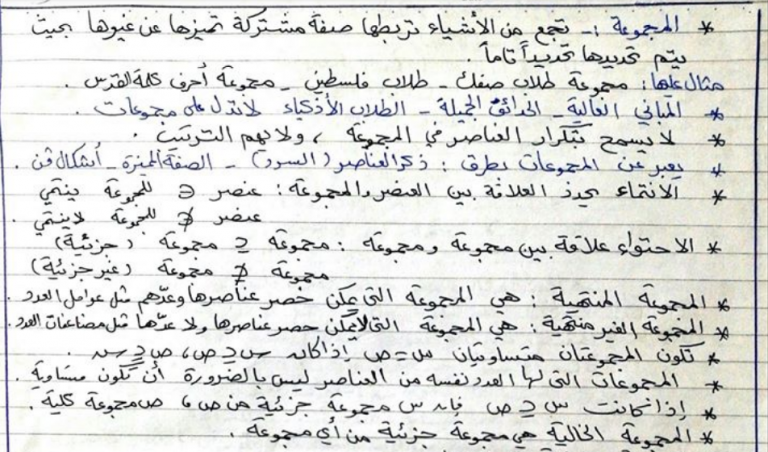 * المجموعة :- تجمع من الأشياء تربطها صفة مشتركة تميزها عن غيرها بحيث
يتم تحديدها تحديداً تاماً .
مثال عليها : مجموعة طلاب صفك - طلاب فلسطين - مجموعة أحرف كلمة القدس .
* المباني العالية - الحدائق الجميلة - الطلاب الأذكياء لا تدل على مجموعات .
* لا يسمح بتكرار العناصر في المجموعة ، ولا يهم الترتيب .
* يعبر عن المجموعات بطرق : ذكر العناصر (السرد) - الصفة المميزة - أشكال فن .
* الانتماء يحدد العلاقة بين العنصر والمجموعة : عنصر ∈ للمجموعة ينتمي
عنصر ∉ للمجموعة لا ينتمي .
* الاحتواء علاقة بين مجموعة ومجموعة : مجموعة ⊇ مجموعة (جزئية)
مجموعة ⊉ مجموعة (غير جزئية)
* المجموعة المنتهية : هي المجموعة التي يمكن حصر عناصرها وعدّهم مثل عوامل العدد .
* المجموعة الغير منتهية : هي المجموعة التي لا يمكن حصر عناصرها ولا عدّها مثل مضاعفات العدد .
* تكون المجموعتان متساويتان س = ص إذا كانت س ⊇ ص ، ص ⊇ س .
* المجموعات التي لها العدد نفسه من العناصر ليس بالضرورة أن تكون متساوية .
* إذا كانت س ⊇ ص فإن س مجموعة جزئية من ص ، ص مجموعة كلية .
* المجموعة الخالية هي مجموعة جزئية من أي مجموعة .